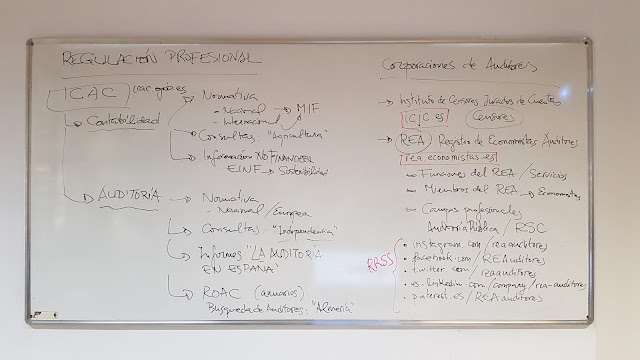 REGULACIÓN PROFESIONAL
ICAC icac.gob.es
Contabilidad
Normativa
- Nacional → MIF
- Internacional
Consultas. "Agricultura"
Información NO FINANCIERA
EINF → Sostenibilidad
AUDITORÍA
Normativa
- Nacional/Europea
Consultas "Independencia"
Informes "LA AUDITORIA
EN ESPAÑA"
ROAC (anuarios)
Busqueda de Auditores, "Almería"
Corporaciones de Auditores
Instituto de Censores Jurados de Cuentas
ICJC.es Censores
REA Registro de Economistas Auditores
rea.economistas.es
Funciones del REA / Servicios
Miembros del REA → Economistas
Campos profesionales
Auditoría Pública / RSC
RRSS
• instagram.com/reaauditores
• facebook.com/REAuditores
• twitter.com/reaauditores
• es.linkedin.com/company/rea-auditores
• pinterest.es/REAauditores